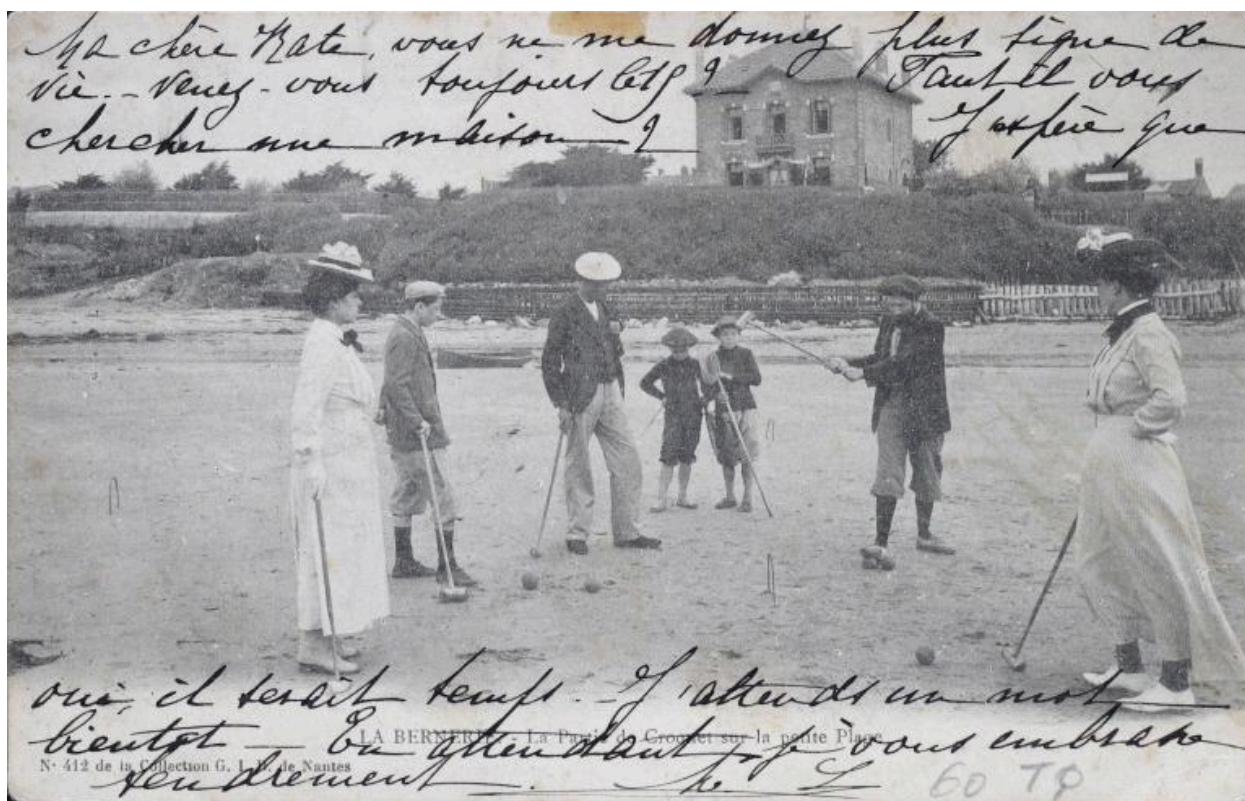 Ma chère Kate, vous ne me donnez plus signe de
vie. - Venez-vous toujours ? Faut il vous
chercher une maison ? J'espère que
oui, il serait temps. - J'attends un mot
bientot — En attendant je vous embrasse
tendrement.
LA BERNERIE - La Partie de Croquet sur la petite Plage
N° 412 de la Collection G. I. D. de Nantes
60 TP